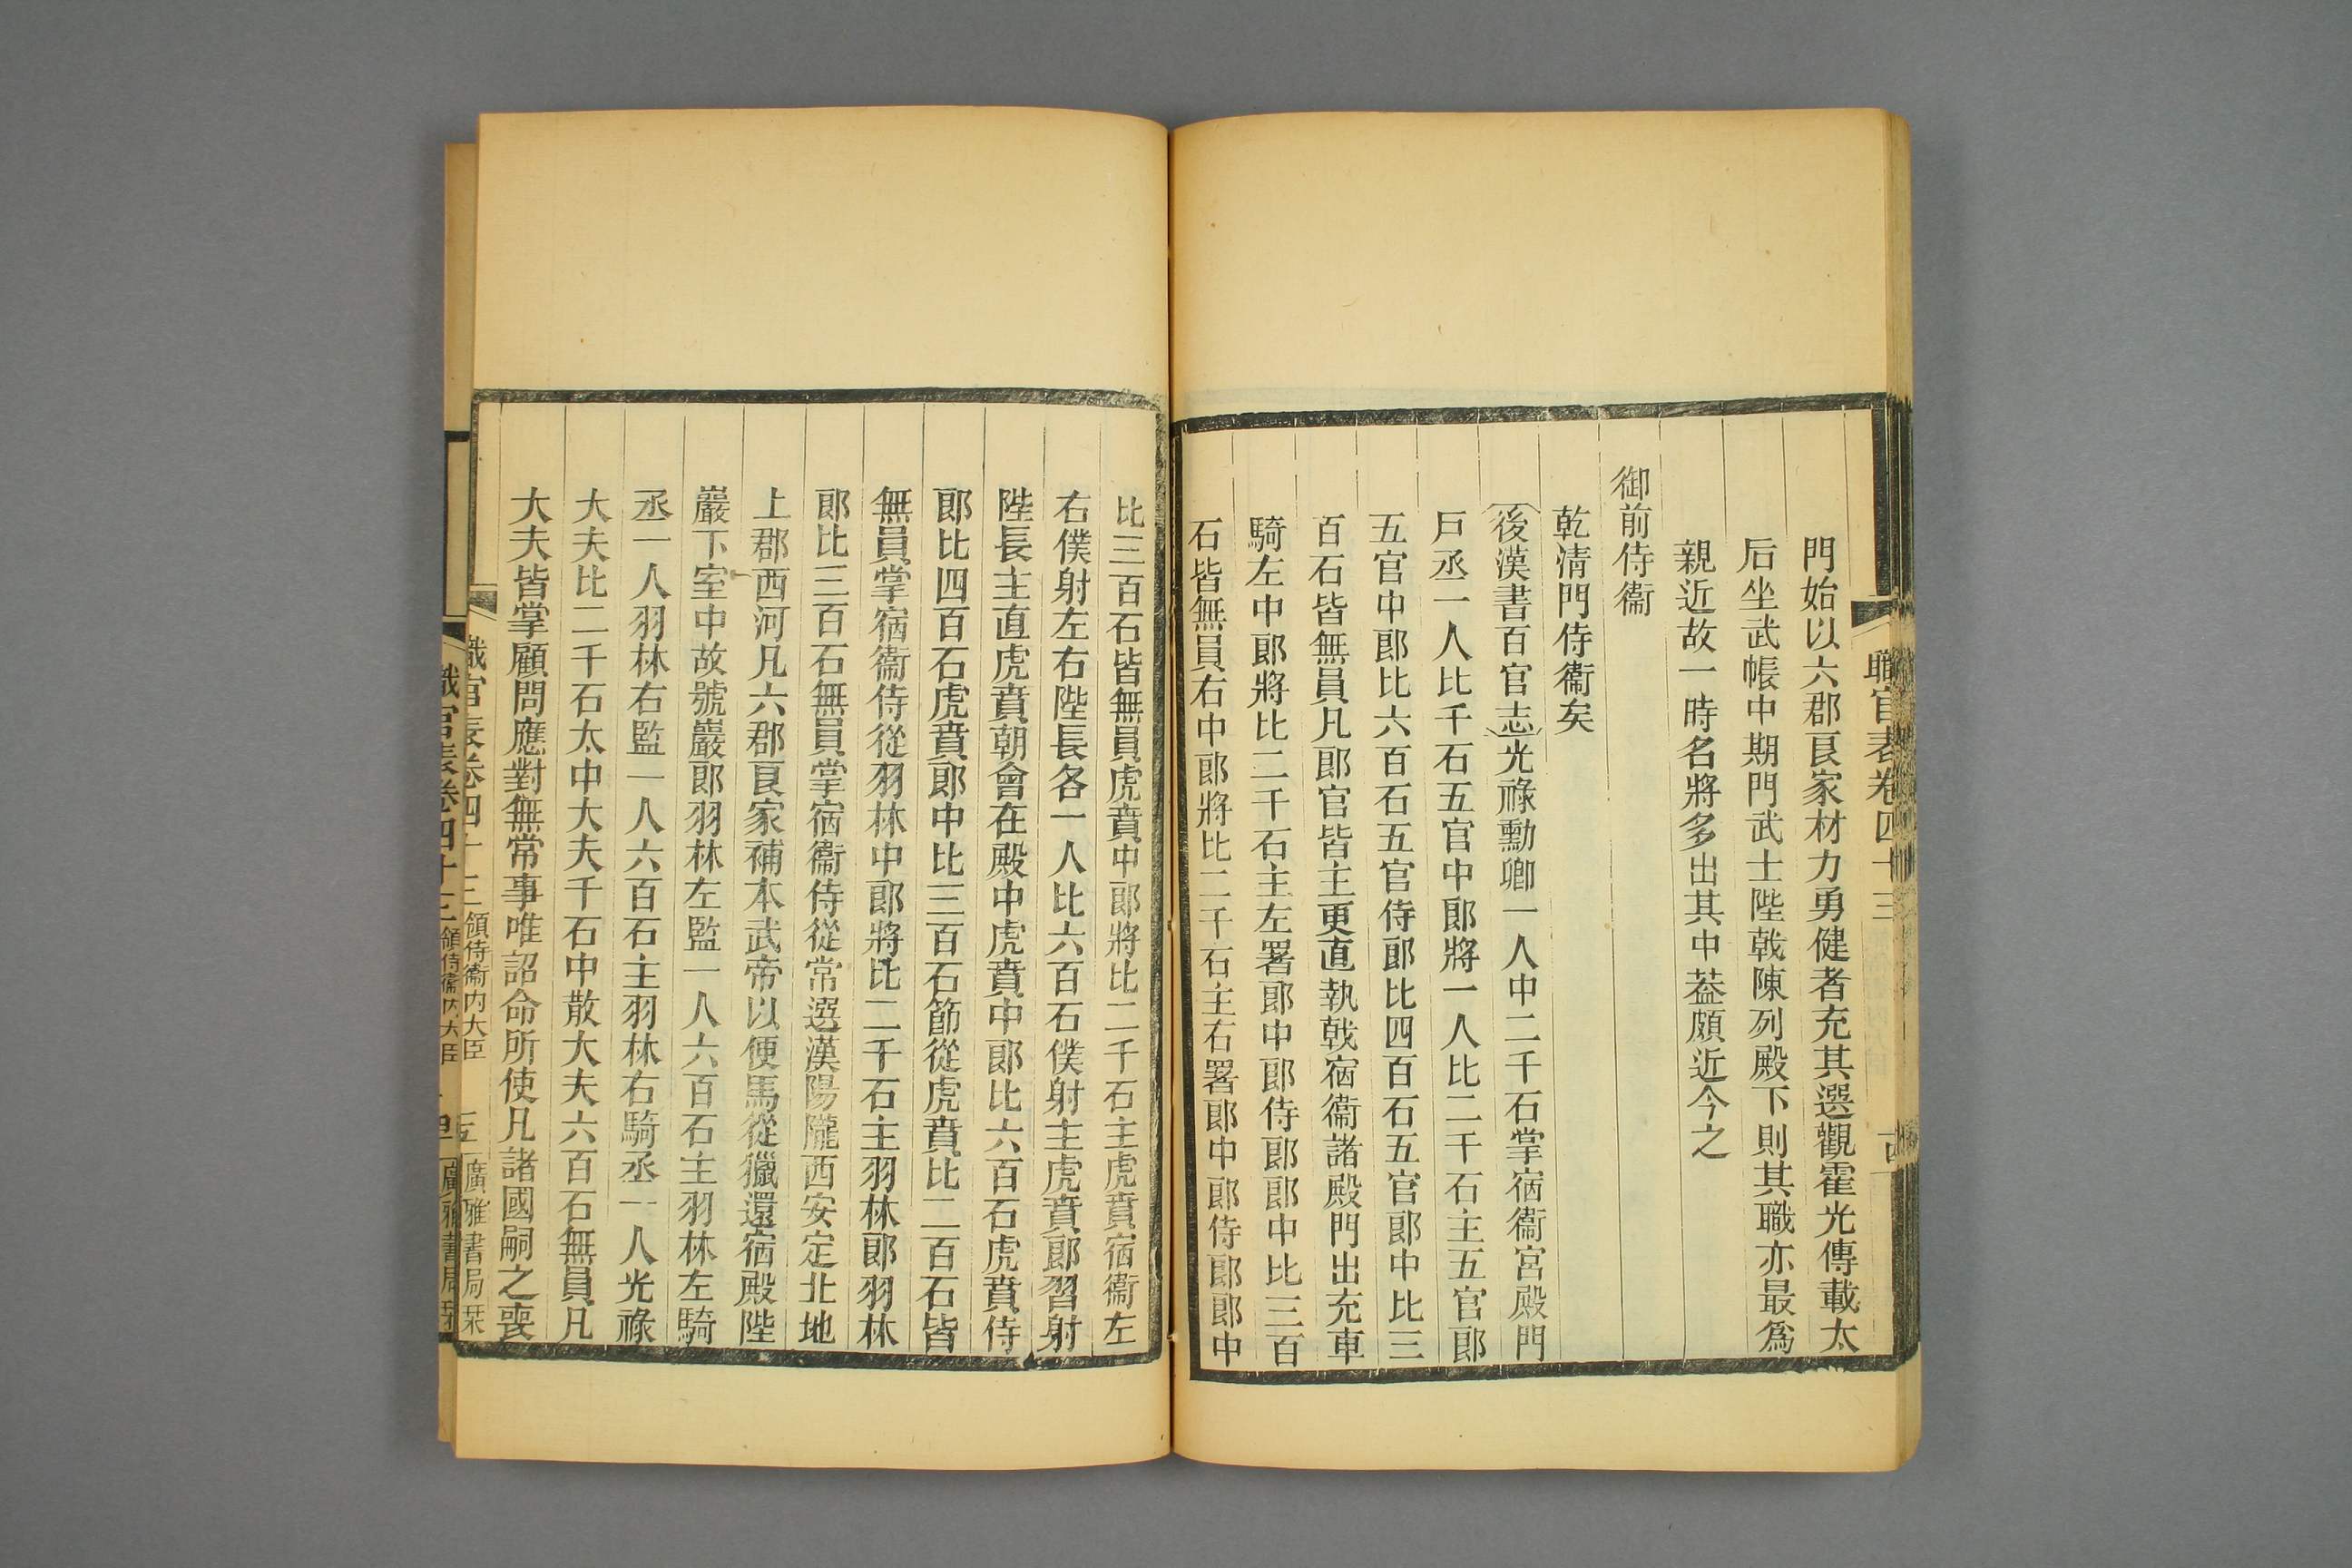 職官表卷四十三
門始以六郡良家材力勇健者充其選觀霍光傳載太
后坐武帳中期門武士陛戟陳列殿下則其職亦最爲
親近故一時名將多出其中葢頗近今之
御前侍衞
乾淸門侍衞矣
後漢書百官志光祿勳卿一人中二千石掌宿衞宮殿門
戸丞一人比千石五官中郞將一人比二千石主五官郞
五官中郞比六百石五官侍郞比四百石五官郞中比三
百石皆無員凡郞官皆主更直執戟宿衞諸殿門出充車
騎左中郞將比二千石主左署郞中郞侍郞郞中比三百
石皆無員右中郞將比二千石主右署郞中郞侍郞郞中
比三百石皆無員虎賁中郞將比二千石主虎賁宿衞左
右僕射左右陛長各一人比六百石僕射主虎賁郞習射
陛長主直虎賁朝會在殿中虎賁中郞比六百石虎賁侍
郞比四百石虎賁郞中比三百石節從虎賁比二百石皆
無員掌宿衞侍從羽林中郞將比二千石主羽林郞羽林
郞比三百石無員掌宿衞侍從常選漢陽隴西安定北地
上郡西河凡六郡良家補本武帝以便馬從獵還宿殿陛
巖下室中故號巖郞羽林左監一人六百石主羽林左騎
丞一人羽林右監一人六百石主羽林右騎丞一人光祿
大夫比二千石太中大夫千石中散大夫六百石無員凡
大夫皆掌顧問應對無常事唯詔命所使凡諸國嗣之喪
職官表卷四十三 領侍衞內大臣 五 廣雅書局栞
職官表卷四十三 領侍衞內大臣 廣雅書局栞